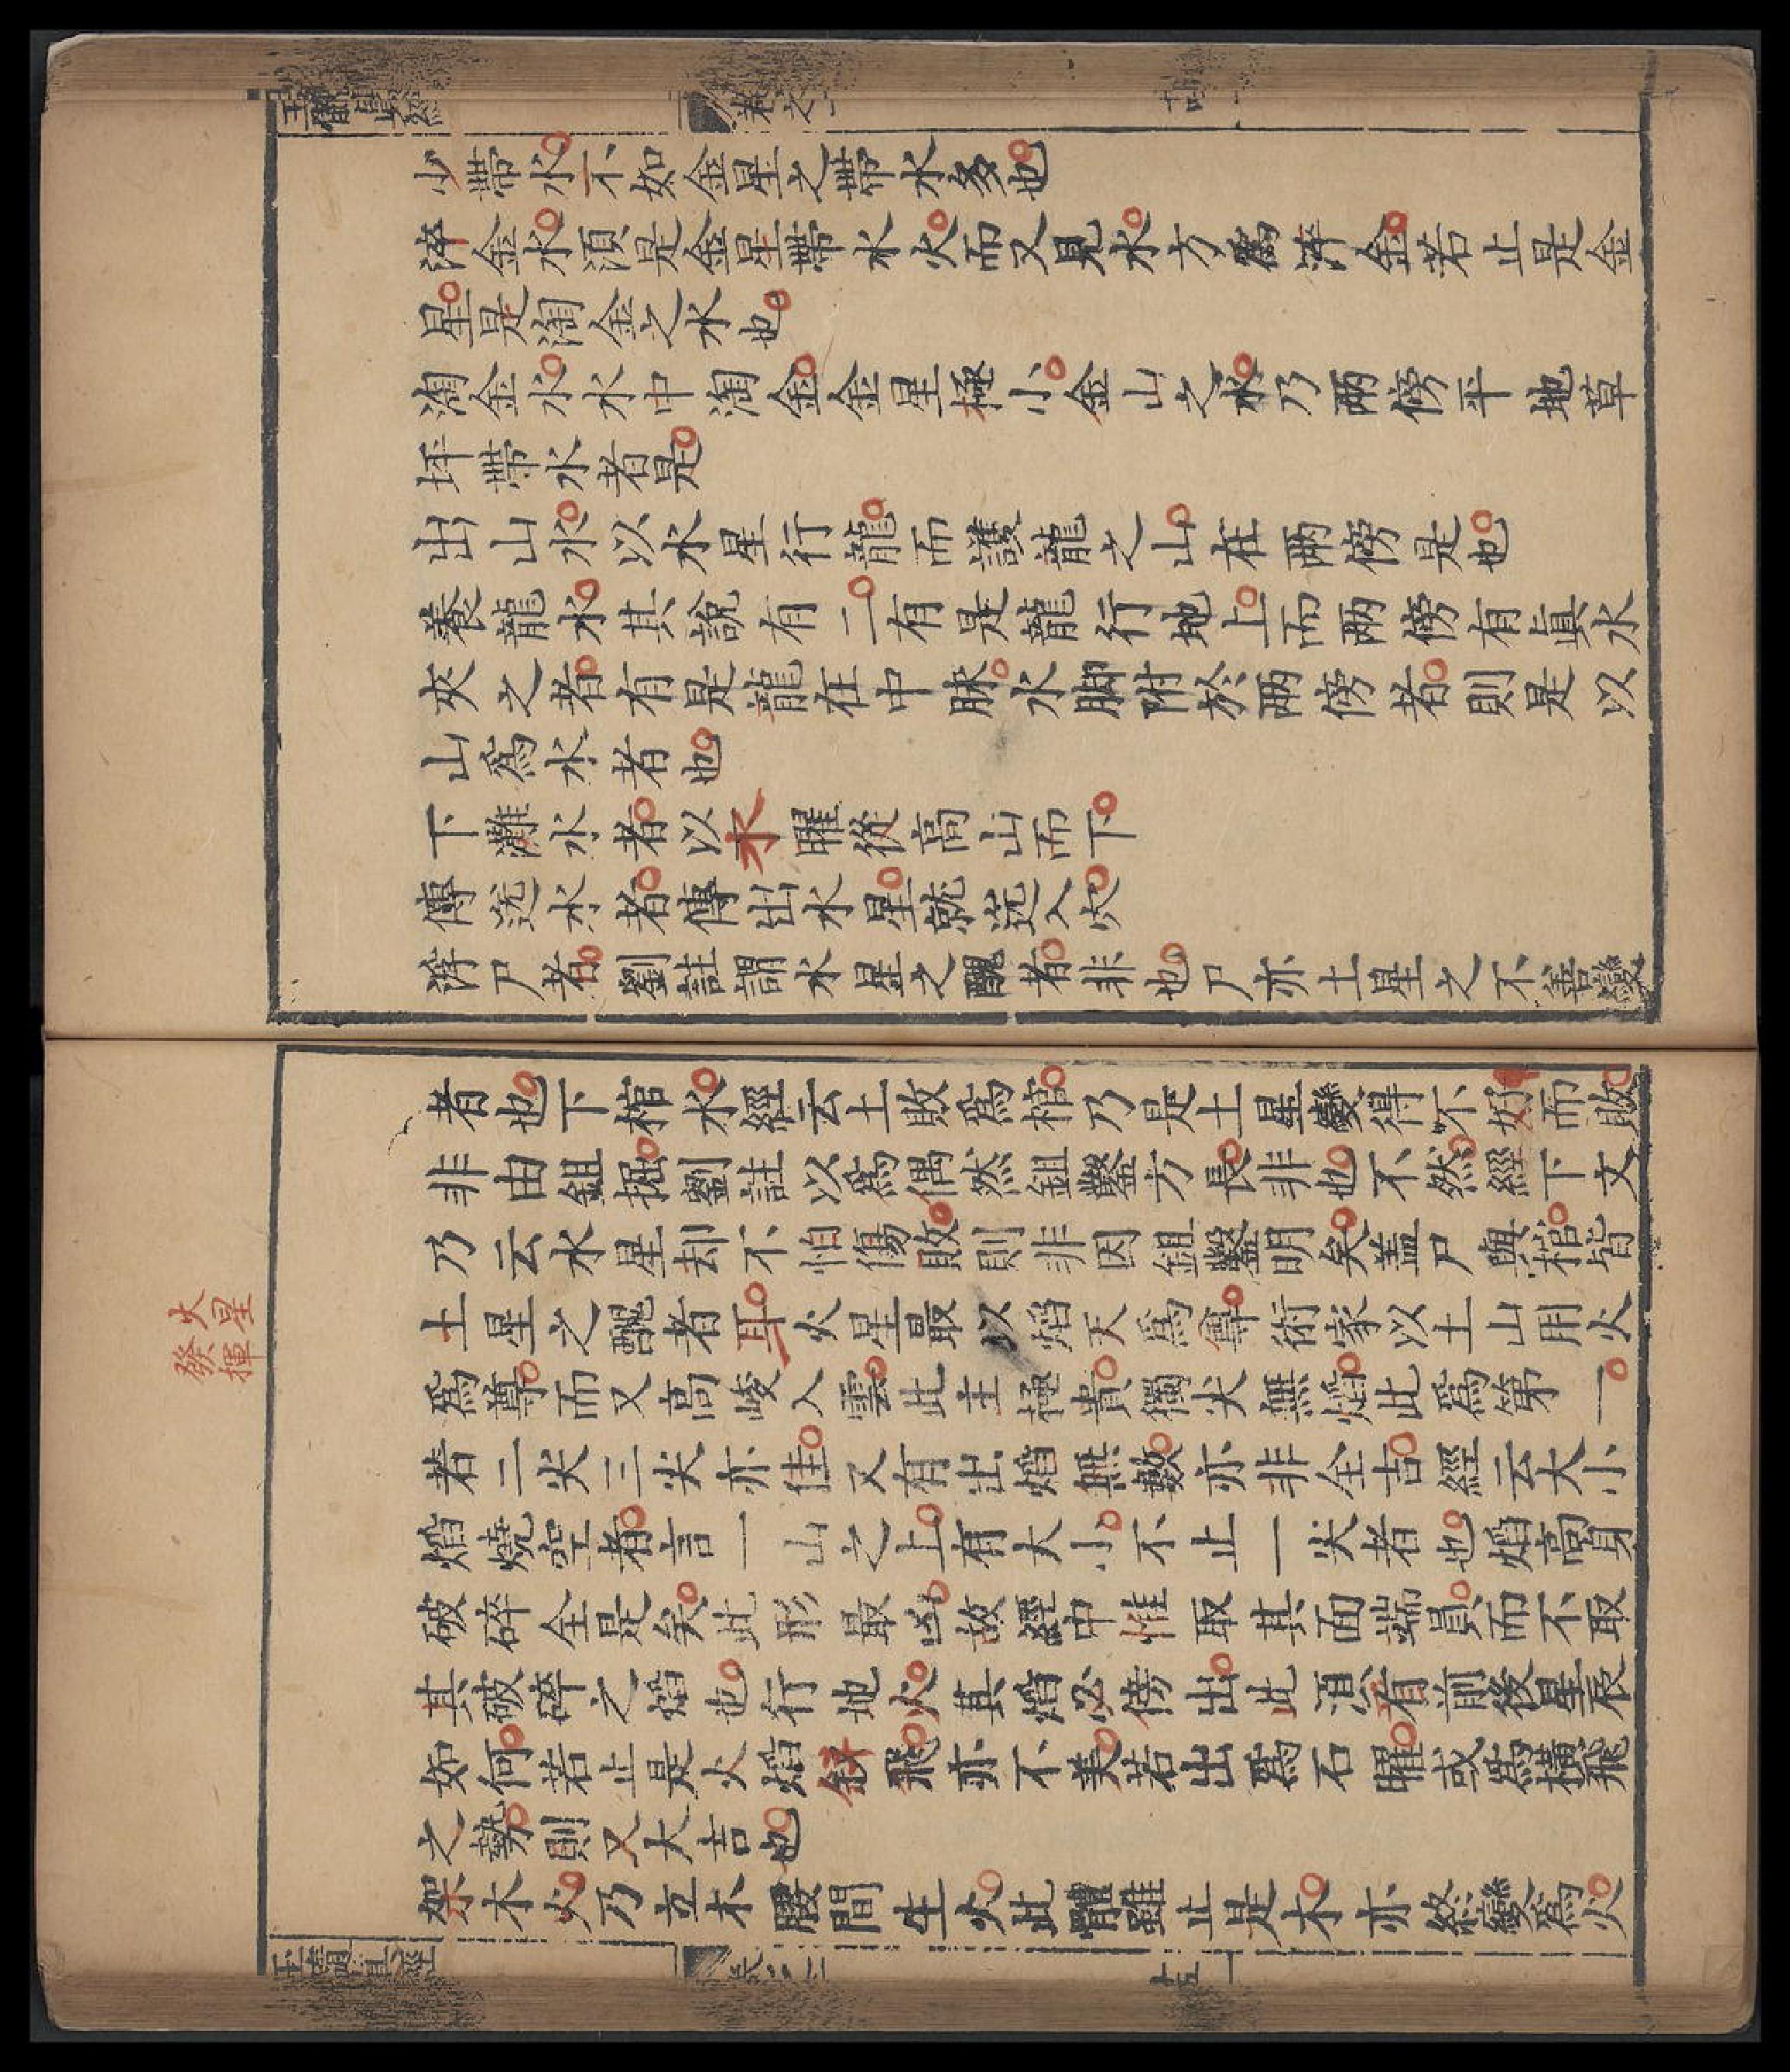 玉髓真經
卷之
少帶水不如金星之帶水多也
淬金水須是金星帶水火而又見水方為淬金若止是金
星是淘金之水也
淘金水水中淘金金星極小金山之水乃兩傍平地草
坪帶水者是
出山水以水星行龍而護龍之山在兩傍是也
養龍水其說有二有是龍行地上而兩傍有眞水
夾之者有是龍在中脉水脚附於兩傍者則是以
山爲水者也
下灘水者以水曜從高山而下
傳送水者傳出水星就送入穴
浮尸者劉註謂水星之醜者非也尸亦土星之不善變
者也下棺水經云土敗爲棺乃是土星變得不好而敗
非由鉏掘劉註以爲偶然鉏鑿方長非也不然經下文
乃云水星却不怕傷敗則非因鉏鑿明矣盖尸與棺皆
土星之醜者耳火星最以熖天爲尊術家以土山用火
爲尊而又高峻入雲此主極貴獨尖無熖此爲第一
若二尖三尖亦佳又有出熖無數亦非全吉經云大小
熖燒空者言一山之上有大小不止一尖者也熖高身
破碎全是矣此形最凶故經中惟取其面端員而不取
其破碎之熖也行地火其熖必傍出此須看前後星辰
如何若止是火熖斜飛亦不美若出爲石曜或爲横飛
之勢則又大吉也
架木火乃立木腰間生火此體雖止是木亦終變爲火
火星
發揮
玉髓真經
卷之二
十五